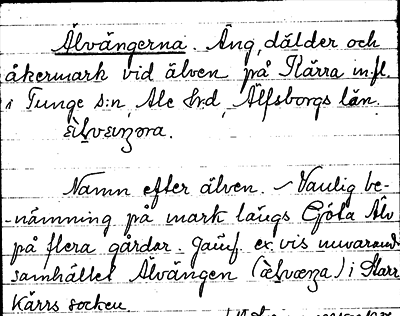 Älvängerna. Äng, dälder och
åkermark vid älven på Kärra m.fl.
i Tunge s:n, Ale h:d, Älfsborgs län.
Namn efter älven. – Vanlig be-
-nämning på mark längs Göta Älv
på flera gårdar. Jämf. ex.vis nuvarande
samhället Älvängen () i Starr
Kärrs socken.